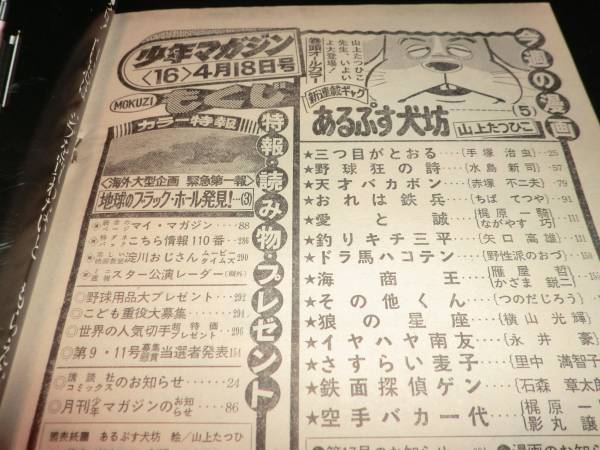 少年マガジン
〈16〉4月18日号
MOKUZI
もくじ
カラー特報
〈海外大型企画 緊急第一報〉
地球のブラック・ホール発見!…(3)
特報・読み物・プレゼント
マイ・マガジン……88
こちら情報110番…286
淀川おじさん ムービータイムズ 290
スター公演レーダー(欄外)
◎野球用品大プレゼント……292
◎こども重役大募集……294
◎世界の人気切手 超特価プレゼント……296
◎第9・11号 募集懸賞 当選者発表154
◎講談社コミックスのお知らせ……24
◎月刊少年マガジンのお知らせ……86
図表紙 あるぷす犬坊 絵/山上たつひ
今週の漫画
山上たつひこ
先生、いよい
よ大登場!
巻頭オールカラー
新連載ギャグ
あるぷす犬坊
(5)
山上たつひこ
★三つ目がとおる(手塚治虫)…25
★野球狂の詩(水島新司)…57
★天才バカボン(赤塚不二夫)…79
★おれは鉄兵(ちばてつや)…91
★愛と誠(梶原一騎 ながやす巧)111
★釣りキチ三平(矢口高雄)…131
★ドラ馬ハコテン(野性派のおづ)
★海商王(雁屋哲 かざま鋭二)
★その他くん(つのだじろう)
★狼の星座(横山光輝)
★イヤハヤ南友(永井豪)
★さすらい麦子(里中満智子
★鉄面探偵ゲン(石森章太郎
★空手バカ一代(梶原一 影丸譲